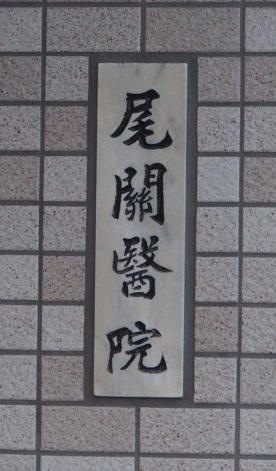 尾關醫院